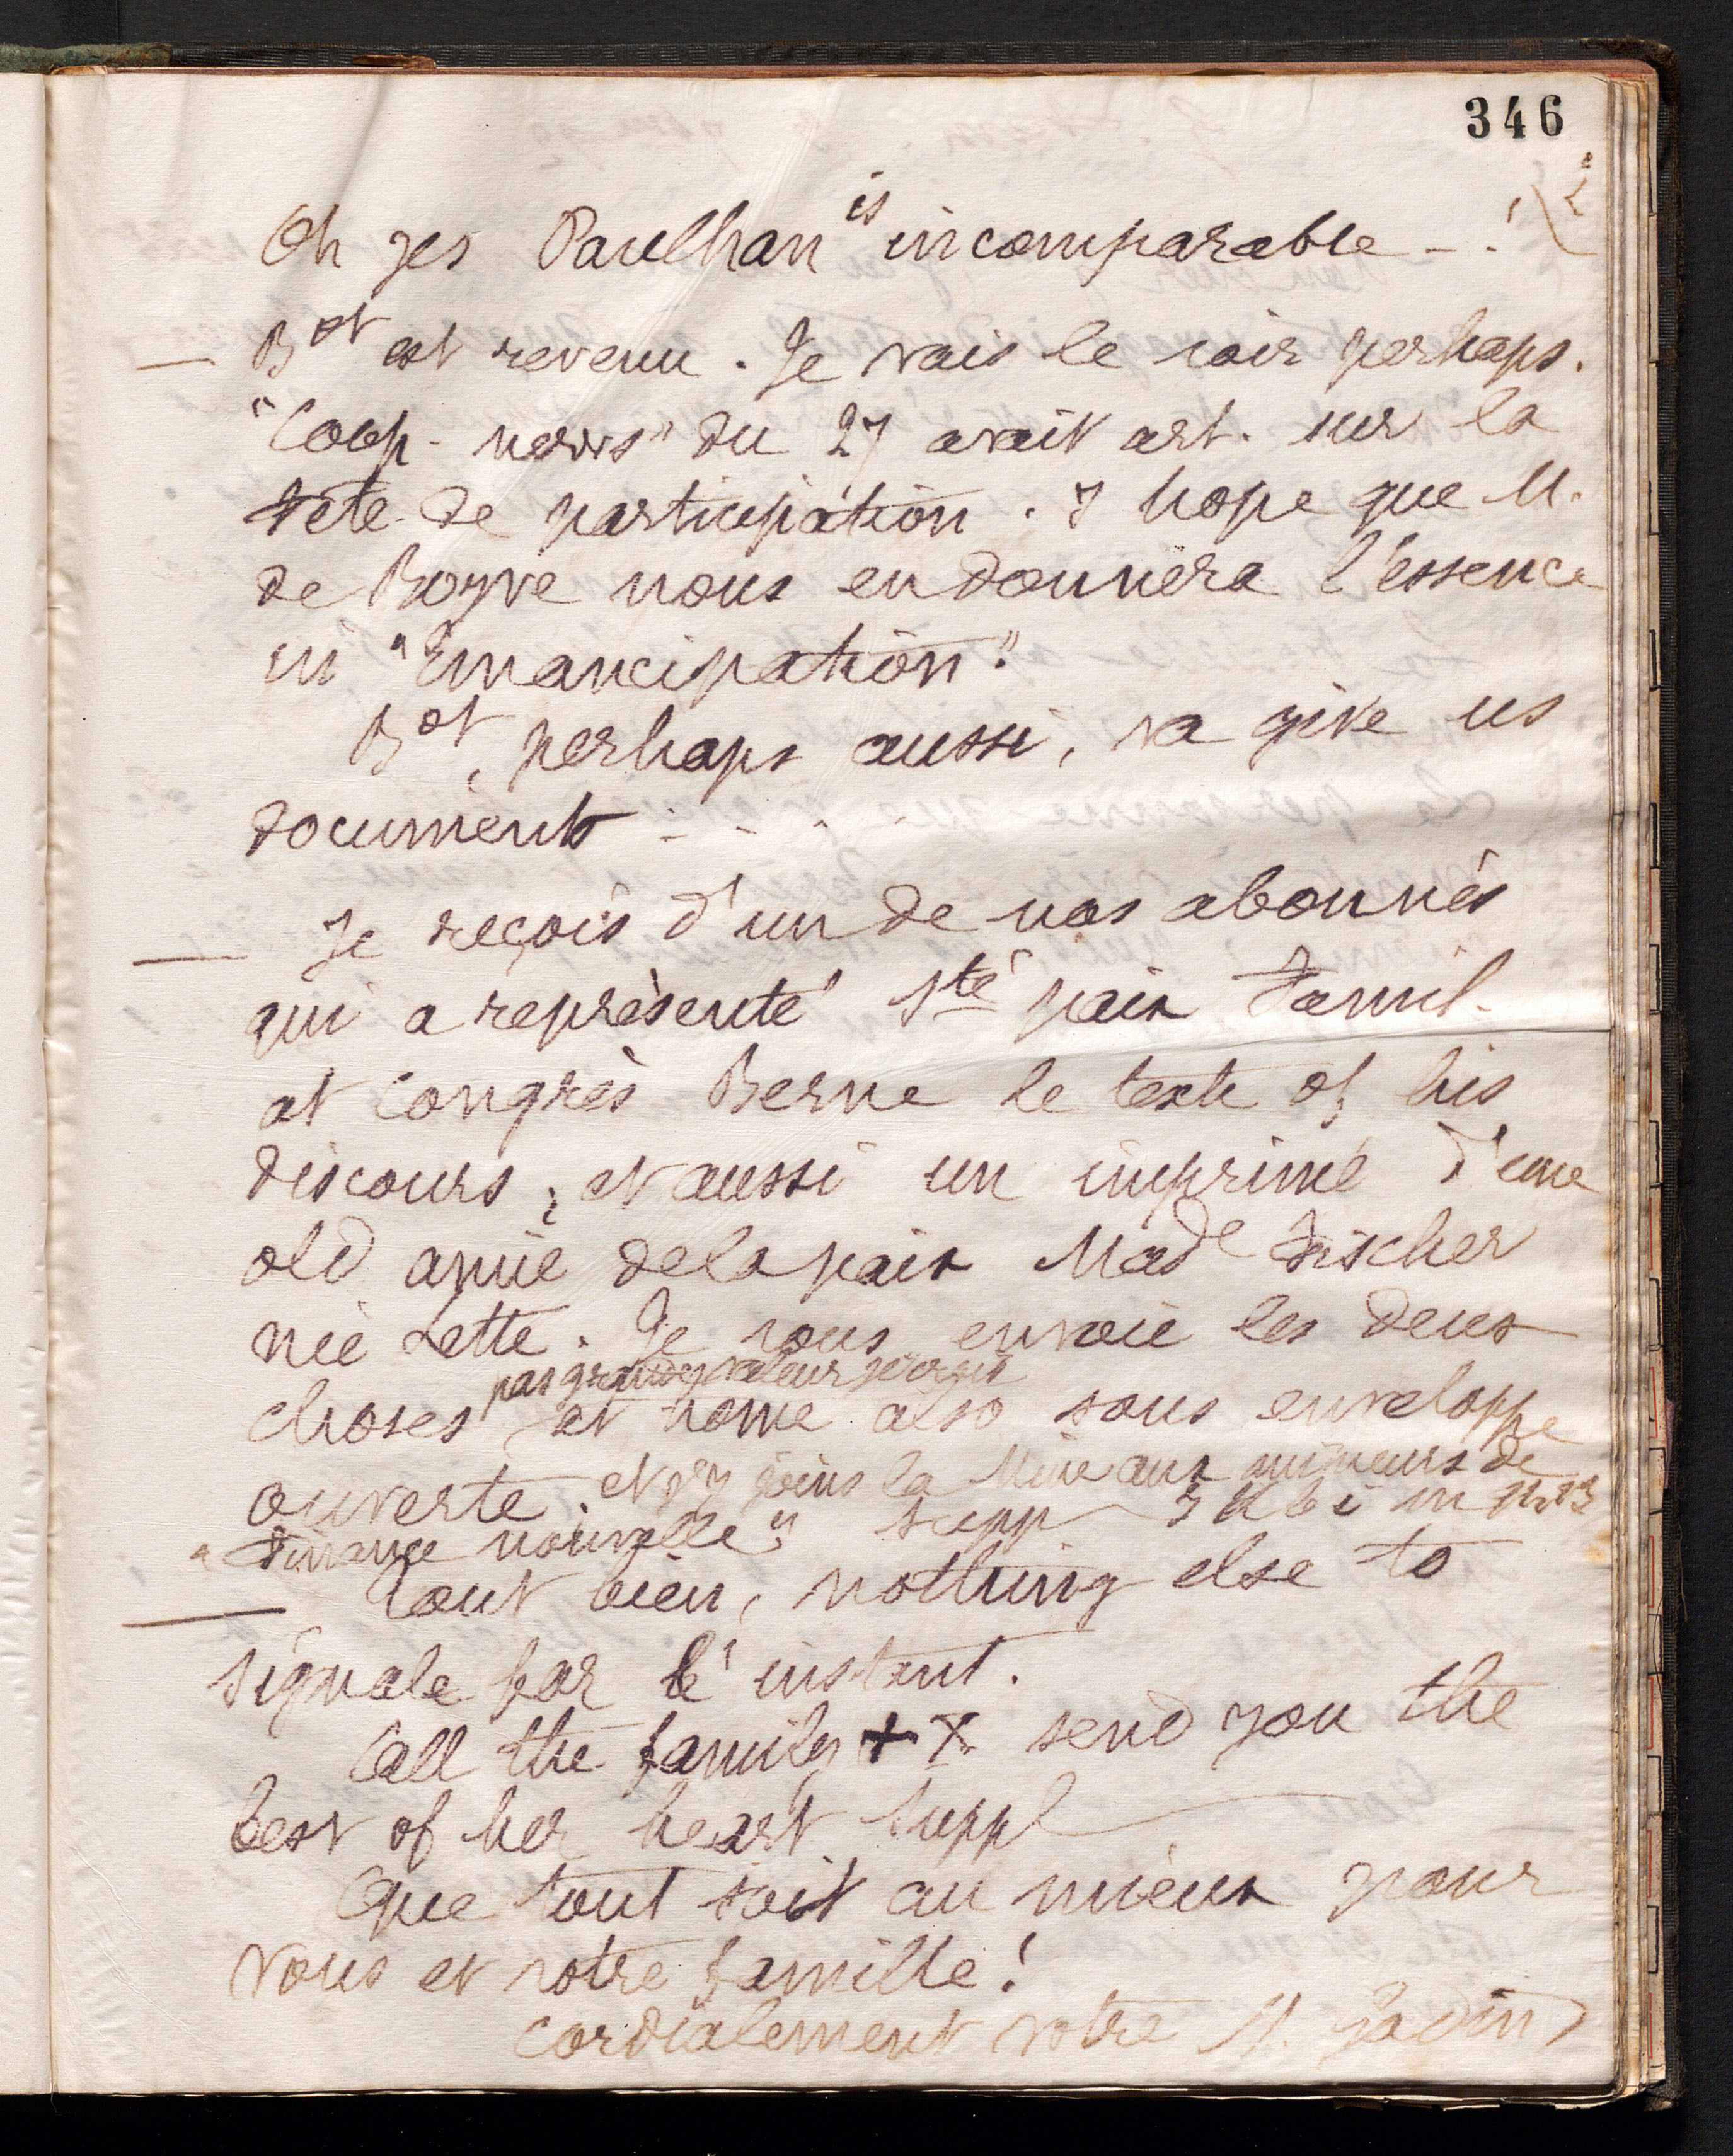 346
2
Oh yes Paulhan is incomparable - . !
— Bot est revenu. Je vais le voir perhaps.
"Coop - news" du 27 avait art. sur la
fete de participation. I hope que M.
de Boyve nous en donnera l'essence
in "Emancipation".
Bot, perhaps aussi, va give us
documents - - . -
— Je reçois d'un de nos abonnés
qui a représenté Sté paix Famil.
at congrès Berne le texte of his
discours ; et aussi un imprimé d'une
old amie de la paix Made Fischer
née Lette. Je vous envoie les deux
pas grande valeur je crois
choses at home also sous enveloppe
ouverte. et j'y joins la Mine aux mineurs de
"Finance nouvelle" supp in
— Tout bien, nothing else to
signale for l'instant.
All the family + X send you the
best of her heart suppl
Que tout soit au mieux pour
vous et votre famille !
Cordialement votre